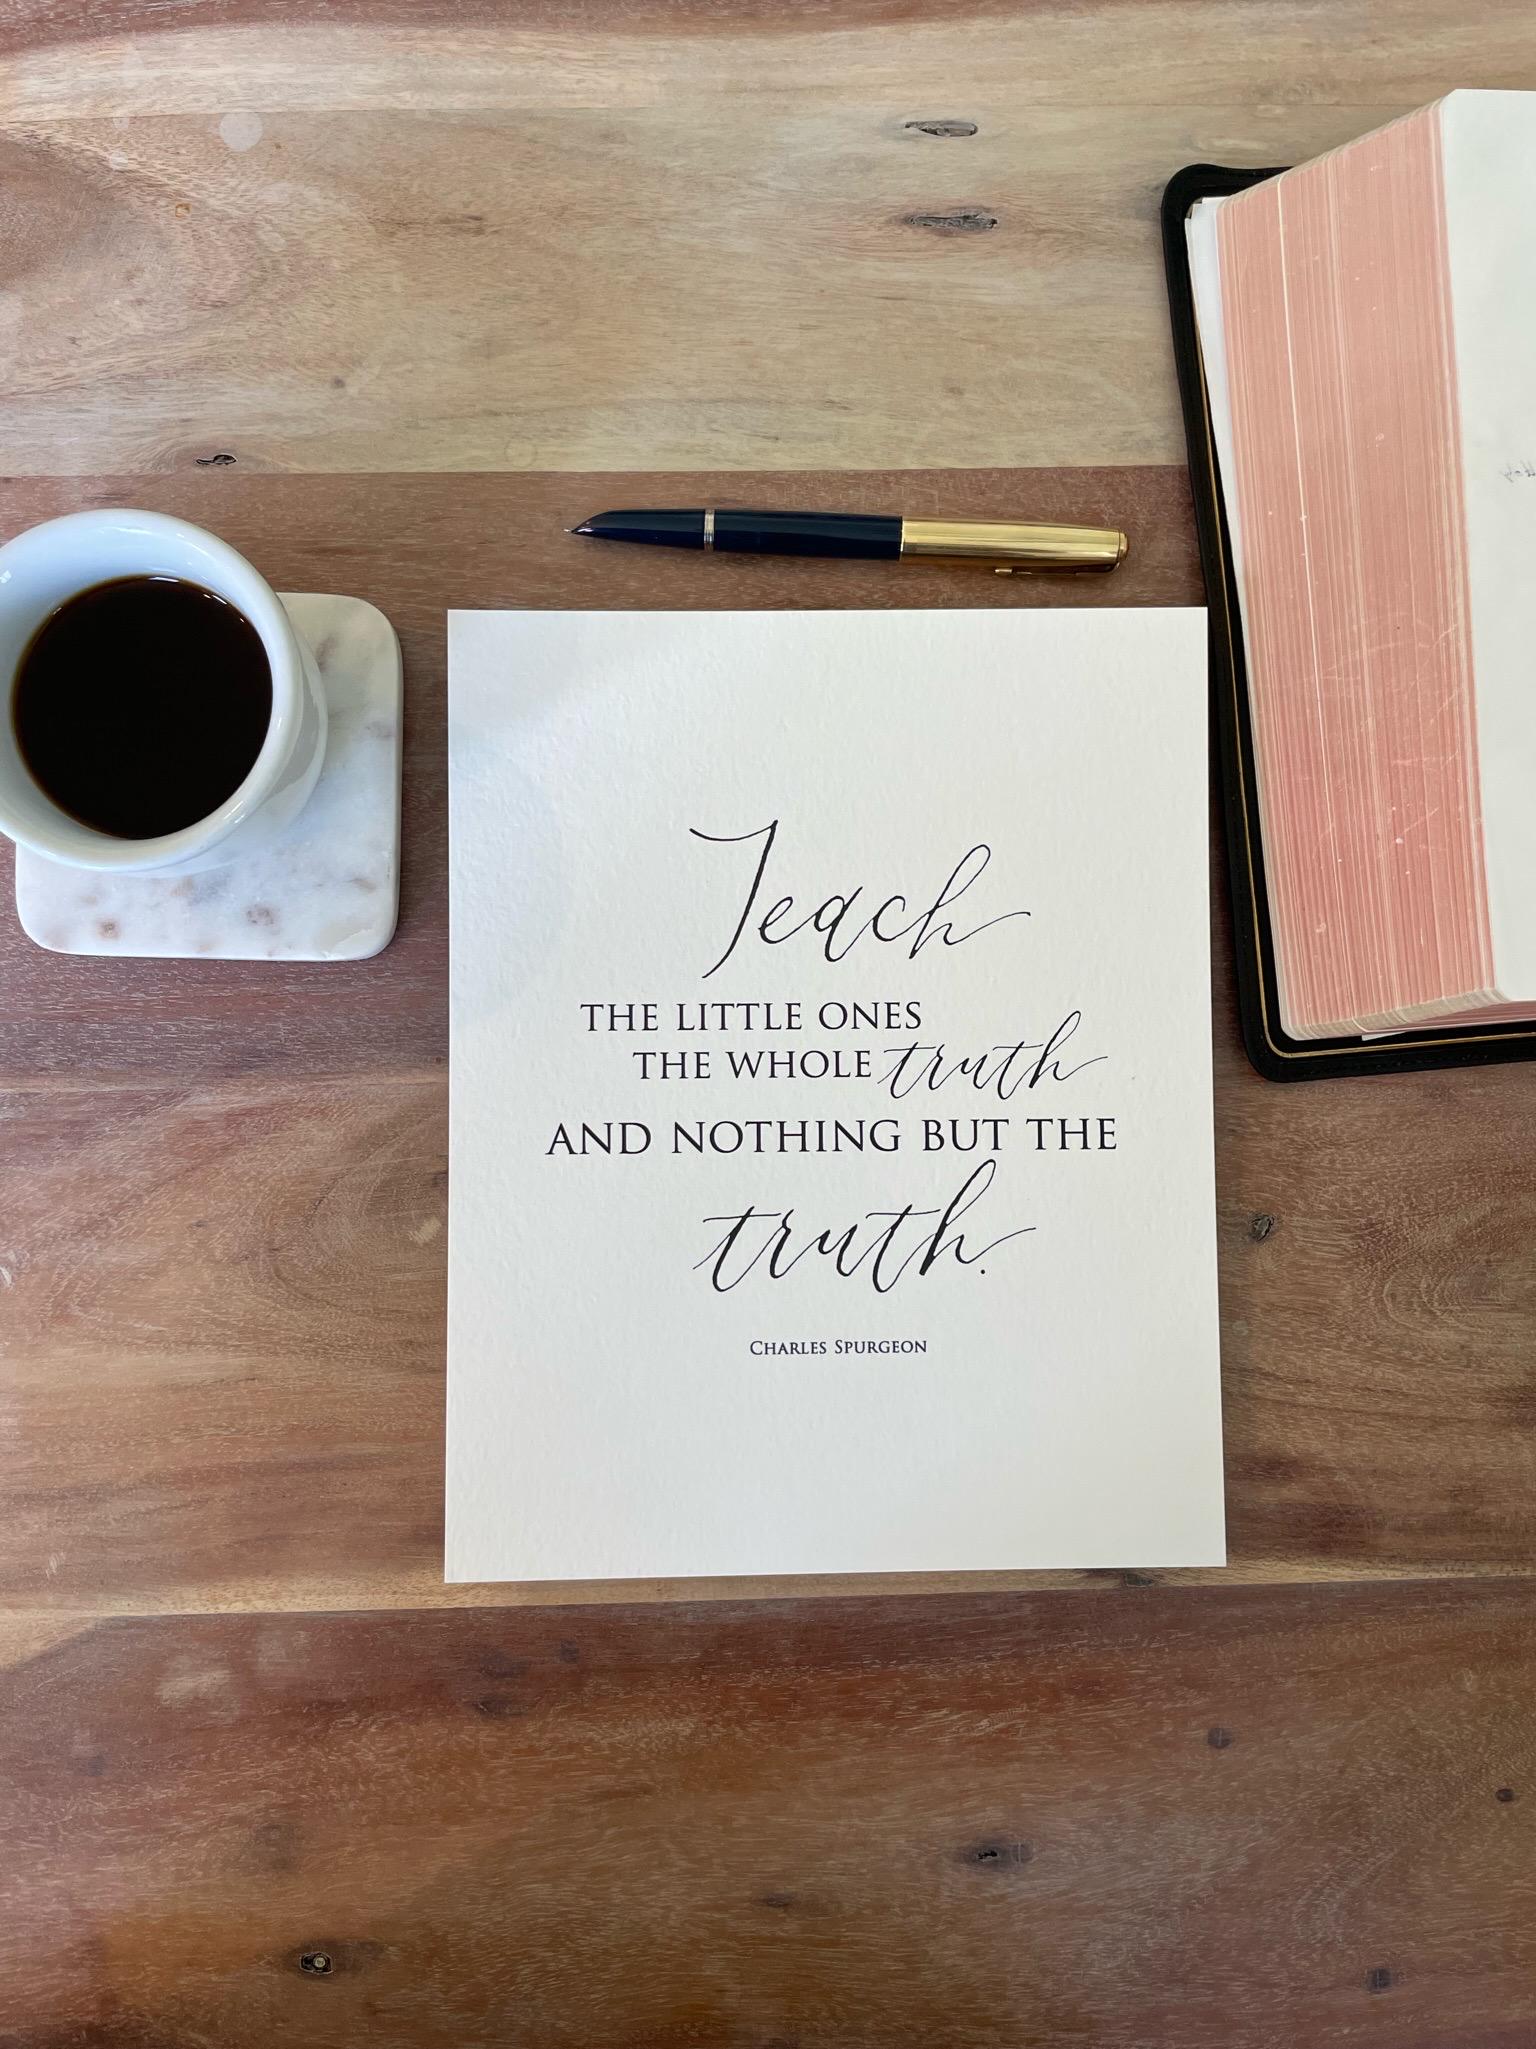 Teach
THE LITTLE ONES
THE WHOLE truth
AND NOTHING BUT THE
truth.
CHARLES SPURGEON